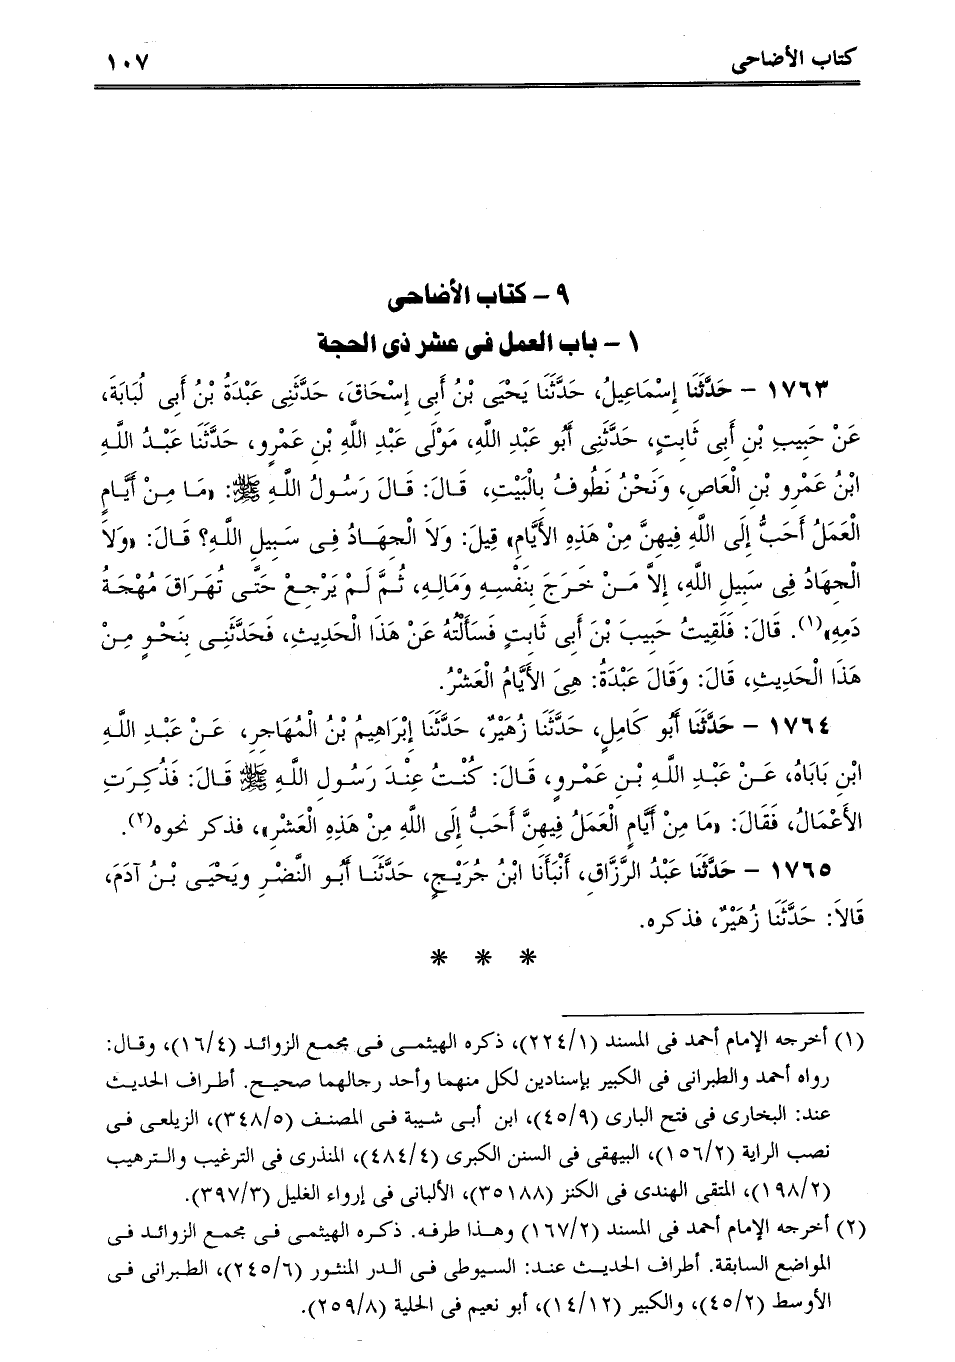 كتاب الأضاحى ١٠٧
٩ - كتاب الأضاحى
١ - باب العمل فى عشر ذى الحجة
١٧٦٣ - حَدَّثَنَا إِسْمَاعِيلُ، حَدَّثَنَا يَحْيَى بْنُ أَبِى إِسْحَاقَ، حَدَّثَنِى عَبْدَةُ بْنُ أَبِى لُبَابَةَ،
عَنْ حَبِيبِ بْنِ أَبِى ثَابِتٍ، حَدَّثَنِى أَبُو عَبْدِ اللَّهِ، مَوْلَى عَبْدِ اللَّهِ بْنِ عَمْرٍو، حَدَّثَنَا عَبْدُ اللَّهِ
ابْنُ عَمْرِو بْنِ الْعَاصِ، وَنَحْنُ نَطُوفُ بِالْبَيْتِ، قَالَ: قَالَ رَسُولُ اللَّهِ ﷺ: «مَا مِنْ أَيَّامٍ
الْعَمَلُ أَحَبُّ إِلَى اللَّهِ فِيهِنَّ مِنْ هَذِهِ الأَيَّامِ» قِيلَ: وَلاَ الْجِهَادُ فِى سَبِيلِ اللَّهِ؟ قَالَ: «وَلاَ
الْجِهَادُ فِى سَبِيلِ اللَّهِ، إِلاَّ مَنْ خَرَجَ بِنَفْسِهِ وَمَالِهِ، ثُمَّ لَمْ يَرْجِعْ حَتَّى تُهَرَاقَ مُهْجَةُ
دَمِهِ»(١). قَالَ: فَلَقِيتُ حَبِيبَ بْنَ أَبِى ثَابِتٍ فَسَأَلْتُهُ عَنْ هَذَا الْحَدِيثِ، فَحَدَّثَنِى بِنَحْوٍ مِنْ
هَذَا الْحَدِيثِ، قَالَ: وَقَالَ عَبْدَةُ: هِىَ الأَيَّامُ الْعَشْرُ.
١٧٦٤ - حَدَّثَنَا أَبُو كَامِلٍ، حَدَّثَنَا زُهَيْرٌ، حَدَّثَنَا إِبْرَاهِيمُ بْنُ الْمُهَاجِرِ، عَنْ عَبْدِ اللَّهِ
ابْنِ بَابَاهُ، عَنْ عَبْدِ اللَّهِ بْنِ عَمْرٍو، قَالَ: كُنْتُ عِنْدَ رَسُولِ اللَّهِ ﷺ قَالَ: فَذُكِرَتِ
الأَعْمَالُ، فَقَالَ: «مَا مِنْ أَيَّامٍ الْعَمَلُ فِيهِنَّ أَحَبُّ إِلَى اللَّهِ مِنْ هَذِهِ الْعَشْرِ»، فذكر نحوه(٢).
١٧٦٥ - حَدَّثَنَا عَبْدُ الرَّزَّاقِ، أَنْبَأَنَا ابْنُ جُرَيْجٍ، حَدَّثَنَا أَبُو النَّضْرِ وَيَحْيَى بْنُ آدَمَ،
قَالاَ: حَدَّثَنَا زُهَيْرٌ، فذكره.
* * *
(١) أخرجه الإمام أحمد فى المسند (٢٢٤/١)، ذكره الهيثمى فى مجمع الزوائد (١٦/٤)، وقال:
رواه أحمد والطبرانى فى الكبير بإسنادين لكل منهما وأحد رجالهما صحيح. أطراف الحديث
عند: البخارى فى فتح البارى (٤٥/٩)، ابن أبى شيبة فى المصنف (٣٤٨/٥)، الزيلعى فى
نصب الراية (١٥٦/٢)، البيهقى فى السنن الكبرى (٤٨٤/٤)، المنذرى فى الترغيب والترهيب
(١٩٨/٢)، المتقى الهندى فى الكنز (٣٥١٨٨)، الألبانى فى إرواء الغليل (٣٩٧/٣).
(٢) أخرجه الإمام أحمد فى المسند (١٦٧/٢) وهذا طرفه. ذكره الهيثمى فى مجمع الزوائد فى
المواضع السابقة. أطراف الحديث عند: السيوطى فى الدر المنثور (٢٤٥/٦)، الطبرانى فى
الأوسط (٤٥/٢)، والكبير (١٤/١٢)، أبو نعيم فى الحلية (٢٥٩/٨).